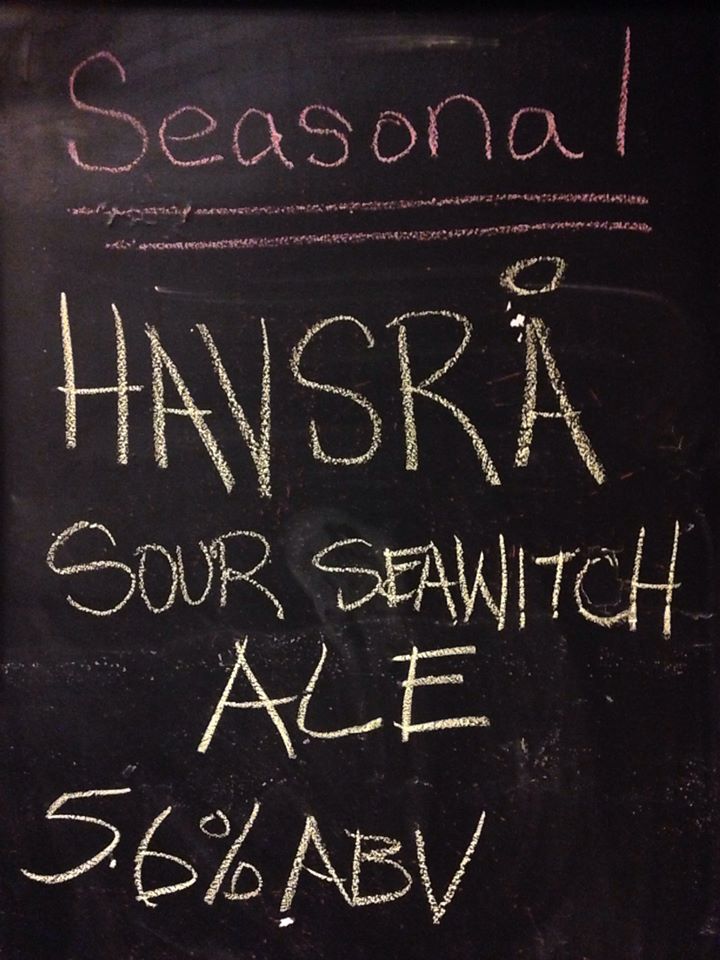 Seasonal
HAVSRÅ
SOUR SEAWITCH
ALE
5.6% ABV